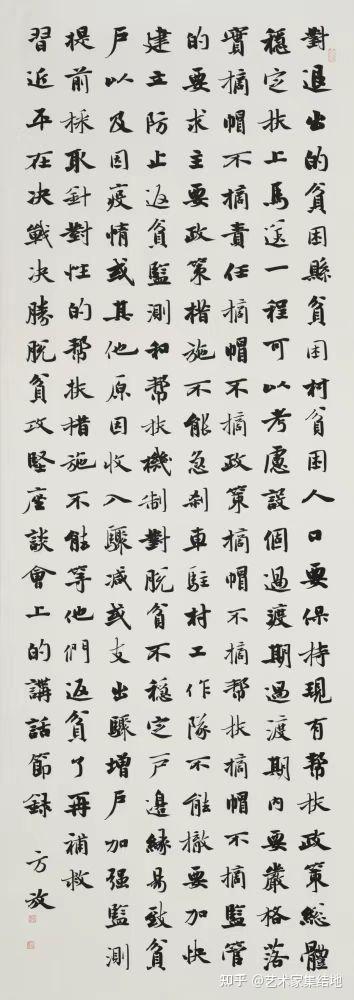 對退出的貧困縣貧困村貧困人口要保持現有帮扶政策總體
穩定扶上馬送一程可以考慮設個過渡期過渡期内要嚴格落
實摘帽不摘責任摘帽不摘政策摘帽不摘帮扶摘帽不摘監管
的要求主要政策措施不能急刹車駐村工作隊不能撤要加快
建立防止返貧監測和帮扶機制對脱貧不穩定户邊緣易致貧
户以及因疫情或其他原因收入驟减或支出驟增户加强監測
提前採取針對性的帮扶措施不能等他們返貧了再補救
習近平在决戰决勝脱貧攻堅座談會上的講話節録 方放
知乎 @艺术家集结地